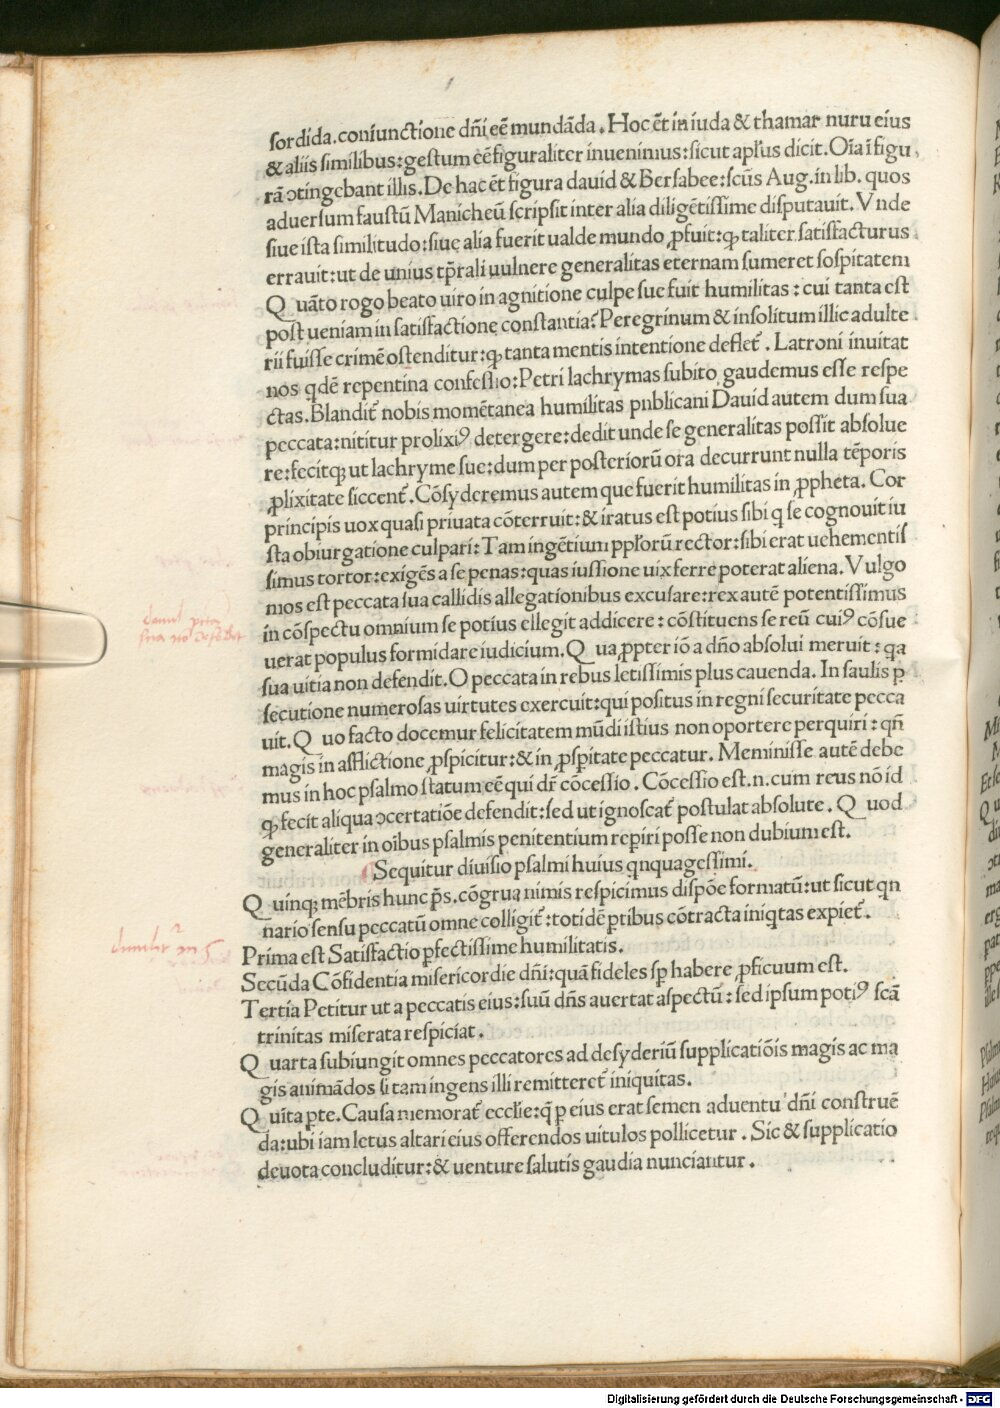 sordida.coniunctione dn̄i eē mundāda. Hoc ēt in iuda & thamar nuru eius
& aliis similibus:gestum eē figuraliter inuenimus:sicut apl'us dicit. Oīa ī figu
rā ↄtingebant illis. De hac ēt figura dauid & Bersabee:scūs Aug. in lib. quos
aduersum faustū Manicheū scripsit inter alia diligētissime disputauit. Vnde
siue ista similitudo:siue alia fuerit ualde mundo ꝓfuit:ꝙ taliter satisfacturus
errauit:ut de unius tp̄rali uulnere generalitas eternam sumeret sospitatem
Q uāto rogo beato uiro in agnitione culpe sue fuit humilitas: cui tanta est
post ueniam in satisfactione constantia? Peregrinum & insolitum illic adulte
rii fuisse crimē ostenditur:ꝙ tanta mentis intentione deflet̄. Latroni inuitat
nos qdē repentina confessio:Petri lachrymas subito gaudemus esse respe
ctas. Blandit̄ nobis momētanea humilitas pnblicani Dauid autem dum sua
peccata:nititur prolixiꝰ detergere:dedit unde se generalitas possit absolue
re:fecitqꝫ ut lachryme sue:dum per posteriorū ora decurrunt nulla tēporis
ꝓlixitate siccent̄. Cōsyderemus autem que fuerit humilitas in ꝓpheta. Cor
principis uox quasi priuata cōterruit:& iratus est potius sibi q se cognouit iu
sta obiurgatione culpari: Tam ingētium pp̄lorū rector:sibi erat uehementis
simus tortor:exigēs a se penas:quas iussione uix ferre poterat aliena. Vulgo
mos est peccata sua callidis allegationibus excusare:rex autē potentissimus
in cōspectu omnium se potius ellegit addicere: cōstituens se reū cuiꝰ cōsue
uerat populus formidare iudicium. Q ua ꝓpter iō a dn̄o absolui meruit: qa
sua uitia non defendit. O peccata in rebus letissimis plus cauenda. In saulis ꝑ
secutione numerosas uirtutes exercuit:qui positus in regni securitate pecca
uit. Q uo facto docemur felicitatem mūdi istius non oportere perquiri: qn̄
magis in afflictione ꝓspicitur:& in ꝓsꝑitate peccatur. Meminisse autē debe
mus in hoc psalmo statum eē qui dr̄ cōcessio. Cōcessio est.n.cum reus nō id
ꝙ fecit aliqua ↄcertatiōe defendit:sed ut ignoscat̄ postulat absolute. Q uod
generaliter in oībus psalmis penitentium reꝑiri posse non dubium est.
Sequitur diuisio psalmi huius qnquagessimi.
Q uinqꝫ mēbris hunc ps̄. cōgrua nimis respicimus dispōe formatū:ut sicut qn
nario sensu peccatū omne colligit̄:totidē ꝑtibus cōtracta iniqtas expiet̄.
Prima est Satisfactio ꝑfectissime humilitatis.
Secūda Cōfidentia misericordie dn̄i:quā fideles sp̄ habere ꝓficuum est.
Tertia Petitur ut a peccatis eius:suū dn̄s auertat aspectū: sed ipsum potiꝰ scā
trinitas miserata respiciat.
Q uarta subiungit omnes peccatores ad desyderiū supplicatiōis magis ac ma
gis animādos si tam ingens illi remitteret̄ iniquitas.
Q uīta ꝑte. Causa memorat̄ ecclīe:q̄ ꝑ eius erat semen aduentu dn̄i construē
da:ubi iam letus altari eius offerendos uitulos pollicetur. Sic & supplicatio
deuota concluditur:& uenture salutis gaudia nunciantur.
Digitalisierung gefördert durch die Deutsche Forschungsgemeinschaft - DFG